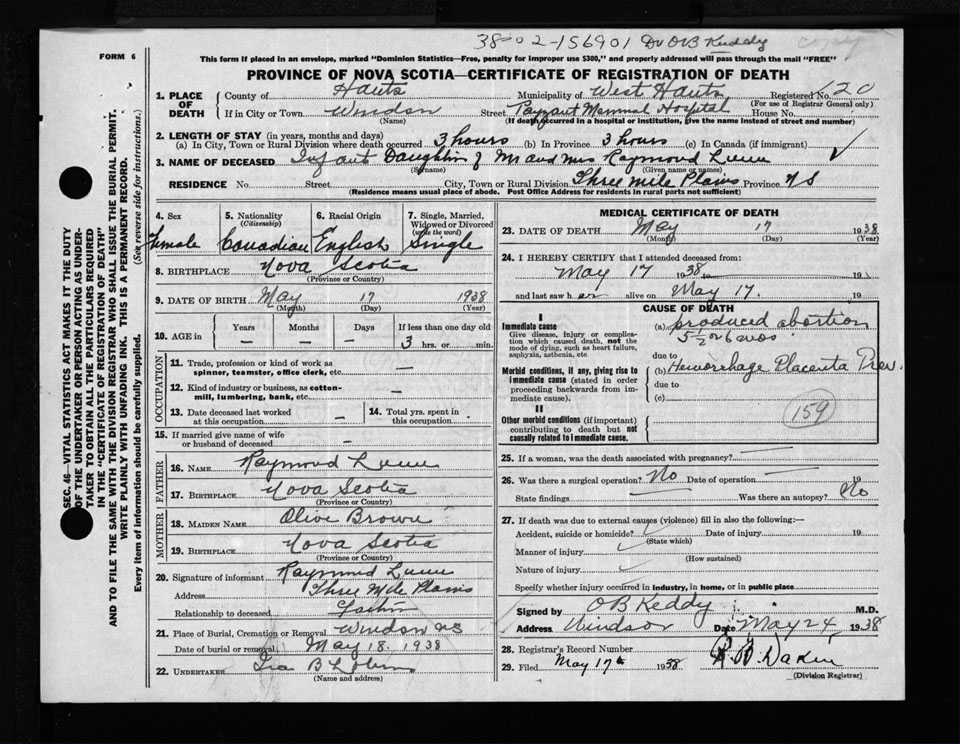 38-02-156901 Dr OB Keddy copy
FORM 6
This form if placed in an envelope, marked "Dominion Statistics—Free, penalty for improper use $300," and properly addressed will pass through the mail "FREE"
PROVINCE OF NOVA SCOTIA—CERTIFICATE OF REGISTRATION OF DEATH
1. PLACE OF DEATH
County of Hants Municipality of West Hants Registered No. 20
(For use of Registrar General only)
If in City or Town Windsor Street Payzant Memorial Hospital House No.
(Name) (If death occurred in a hospital or institution, give the name instead of street and number)
2. LENGTH OF STAY (in years, months and days)
(a) In City, Town or Rural Division where death occurred 3 hours (b) In Province 3 hours (c) In Canada (if immigrant)
3. NAME OF DECEASED Infant Daughter of Mr and Mrs Raymond
(Surname) (Given name or names)
RESIDENCE No. Street City, Town or Rural Division Three Mile Plains Province NS
(Residence means usual place of abode. Post Office Address for residents in rural parts not sufficient)
4. Sex
Female
5. Nationality
(Citizenship)
Canadian
6. Racial Origin
English
7. Single, Married, Widowed or Divorced
(write the word)
Single
8. BIRTHPLACE Nova Scotia
(Province or Country)
9. DATE OF BIRTH May 17 1938
(Month) (Day) (Year)
10. AGE in Years Months Days If less than one day old
— — — 3 hrs. or min.
OCCUPATION
11. Trade, profession or kind of work as
spinner, teamster, office clerk, etc. —
12. Kind of industry or business, as cotton-
mill, lumbering, bank, etc. —
13. Date deceased last worked
at this occupation —
14. Total yrs. spent in
this occupation —
15. If married give name of wife
or husband of deceased —
FATHER
16. NAME Raymond
17. BIRTHPLACE Nova Scotia
(Province or Country)
MOTHER
18. MAIDEN NAME Olive Brown
19. BIRTHPLACE Nova Scotia
(Province or Country)
20. Signature of informant Raymond
Address Three Mile Plains
Relationship to deceased Father
21. Place of Burial, Cremation or Removal Windsor NS
Date of burial or removal May 18, 1938
22. UNDERTAKER Ira B
(Name and address)
MEDICAL CERTIFICATE OF DEATH
23. DATE OF DEATH May 17 1938
(Month) (Day) (Year)
24. I HEREBY CERTIFY that I attended deceased from:
May 17 1938 to 19
and last saw her alive on May 17. 19
CAUSE OF DEATH
I
Immediate cause
Give disease, injury or complication which caused death, not the mode of dying, such as heart failure, asphyxia, asthenia, etc
(a) produced abortion
5½ or 6 mos
due to
Morbid conditions, if any, giving rise to immediate cause (stated in order proceeding backwards from immediate cause).
(b) Hemorrhage Placenta Prev.
due to
(c)
II
Other morbid conditions (if important) contributing to death but not causally related to immediate cause.
159
25. If a woman, was the death associated with pregnancy?
26. Was there a surgical operation? No Date of operation 19
State findings Was there an autopsy? No
27. If death was due to external causes (violence) fill in also the following:—
Accident, suicide or homicide? Date of injury 19
(State which)
Manner of injury
(How sustained)
Nature of injury
Specify whether injury occurred in industry, in home, or in public place
Signed by OB Keddy M.D.
Address Windsor Date May 24, 1938
28. Registrar's Record Number
29. Filed May 17th 1938
(Division Registrar)
SEC. 46—VITAL STATISTICS ACT MAKES IT THE DUTY
OF THE UNDERTAKER OR PERSON ACTING AS UNDER-
TAKER TO OBTAIN ALL THE PARTICULARS REQUIRED
IN THE "CERTIFICATE OF REGISTRATION OF DEATH"
AND TO FILE THE SAME WITH THE DIVISION REGISTRAR WHO SHALL ISSUE THE BURIAL PERMIT.
WRITE PLAINLY WITH UNFADING INK. THIS IS A PERMANENT RECORD.
Every item of information should be carefully supplied. (See reverse side for instructions.)